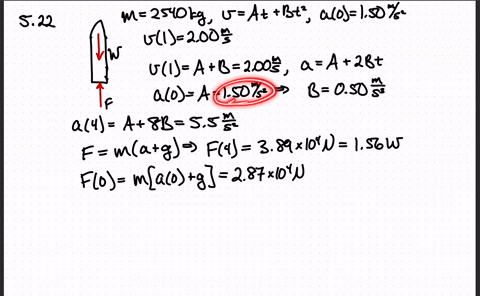 5.22 m = 2540 kg, v = At + Bt², a(0) = 1.50 m/s²
v(1) = 2.00 m/s
W
v(1) = A + B = 2.00 m/s, a = A + 2Bt
a(0) = A = 1.50 m/s² ⇒ B = 0.50 m/s²
F
a(4) = A + 8B = 5.5 m/s²
F = m(a+g) ⇒ F(4) = 3.89 × 10⁴ N = 1.56 W
F(0) = m[a(0) + g] = 2.87 × 10⁴ N